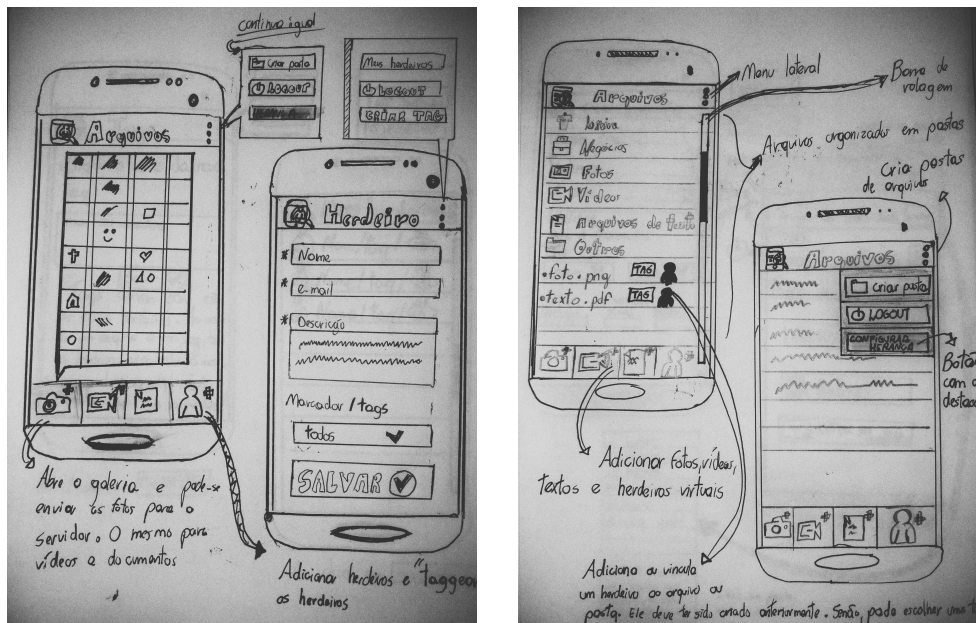 continua igual
Criar pasta
LOGOUT
Meus herdeiros
LOGOUT
CRIAR TAG
Arquivos
Herdeiro
* Nome
* e-mail
* Descrição
Marcador / tags
todos
SALVAR
Abre a galeria e pode-se
enviar as fotos para o
servidor. O mesmo para
vídeos e documentos
Adicionar herdeiros e "taggear
os herdeiros
Menu lateral
Barra de
rolagem
Arquivos
Negócios
Fotos
Vídeos
Arquivos de texto
Outros
• foto.png TAG
• texto.pdf TAG
Arquivos organizados em pastas
Cria pastas
de arquivos
Arquivos
Criar pasta
LOGOUT
CONFIGURAR
HERANÇA
Botão
com
Adicionar fotos, vídeos,
textos e herdeiros virtuais
Adiciona ou vincula
um herdeiro ao arquivo ou
pasta. Ele deve ter sido criado anteriormente. Senão, pode escolher uma